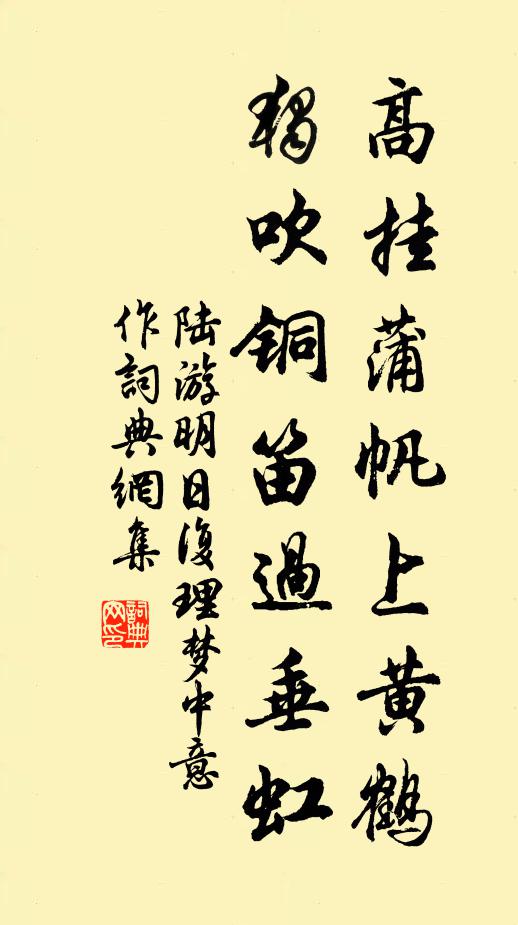 高挂蒲帆上黄鹤
独吹铜笛過垂虹
陆游明日復理梦中意
作詞典網集
詞典网印